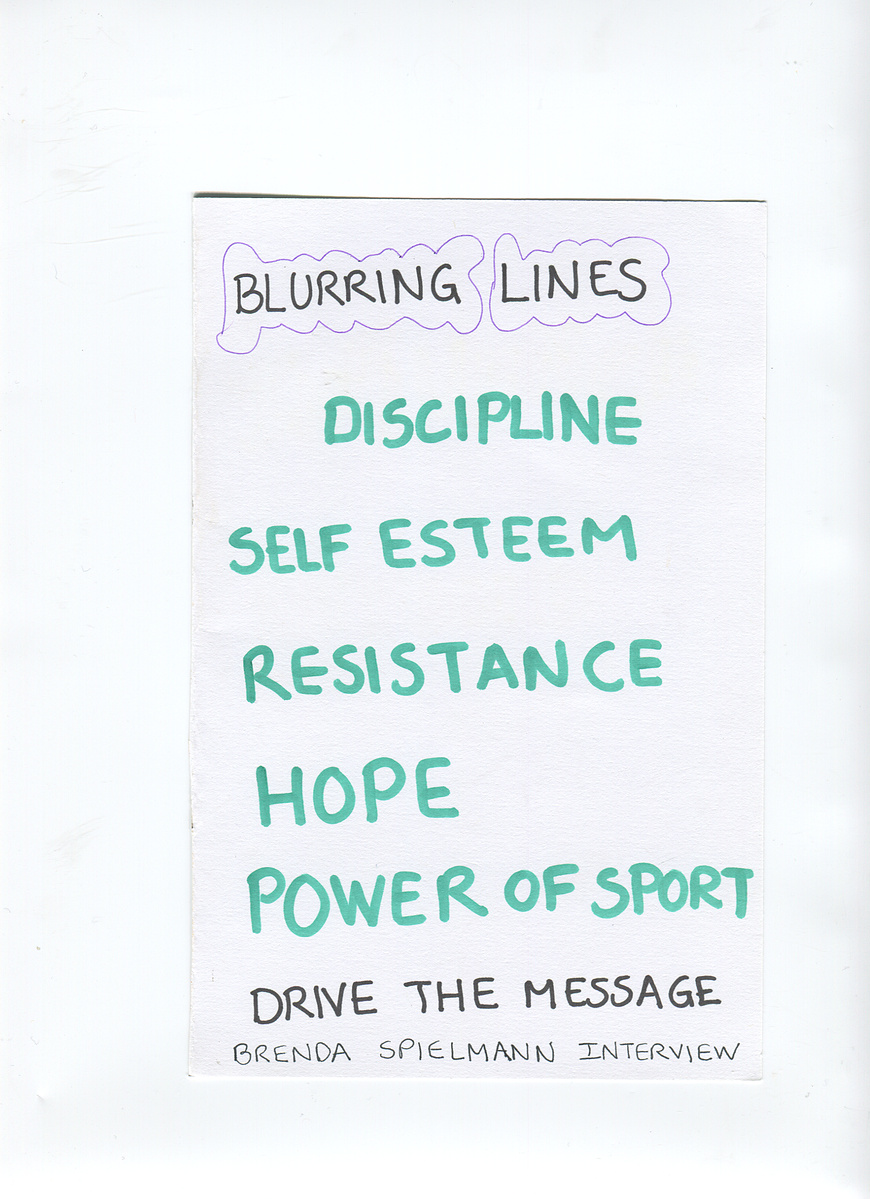 BLURRING LINES
DISCIPLINE
SELF ESTEEM
RESISTANCE
HOPE
POWER OF SPORT
DRIVE THE MESSAGE
BRENDA SPIELMANN INTERVIEW